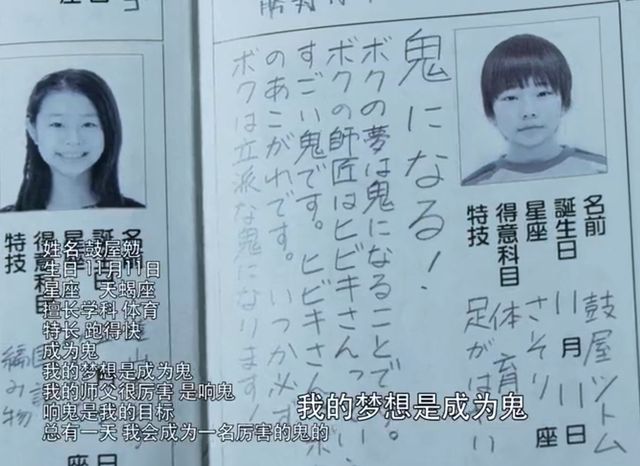 名前 鼓屋ツトム
誕生日 11月11日
星座 さそり座
得意科目 体育
特技 足がはやい
鬼になる!
ボクの夢は鬼になることで。
ボクの師匠はヒビキさんっ い
すごい鬼です。ヒビキさん ボ
のあこがれです。いつか必ず
ボクは立派な鬼になります!
名前
誕生日
星座
得意科目 国語
特技 編み物
姓名 鼓屋勉
生日 11月11日
星座 天蝎座
擅长学科 体育
特长 跑得快
成为鬼
我的梦想是成为鬼
我的师父很厉害 是响鬼
响鬼是我的目标
总有一天 我会成为一名厉害的鬼的
我的梦想是成为鬼